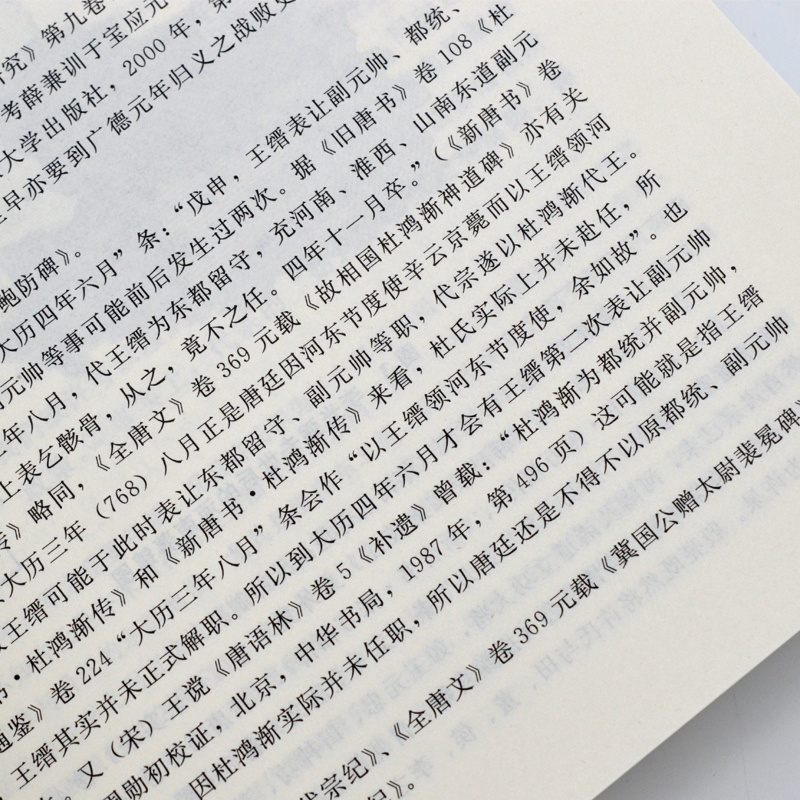 研究》第九卷
考薛兼训于宝应元
大学出版社，2000 年，第
至早亦要到广德元年归义之战败史
鲍防碑》。
大历四年六月”条：“戊申，王缙表让副元帅、都统、
元帅等事可能前后发生过两次。据《旧唐书》卷 108《杜
年八月，代王缙为东都留守，充河南、淮西、山南东道副元
上表乞骸骨，从之，竟不之任。四年十一月卒。”（《新唐书》卷
传》略同，《全唐文》卷 369 元载《故相国杜鸿渐神道碑》亦有关
大历三年（768）八月正是唐廷因河东节度使辛云京薨而以王缙领河
王缙可能于此时表让东都留守、副元帅等职，代宗遂以杜鸿渐代王。
书·杜鸿渐传》和《新唐书·杜鸿渐传》来看，杜氏实际上并未赴任，所
通鉴》卷 224“大历三年八月”条会作“以王缙领河东节度使，余如故”。也
王缙其实并未正式解职。所以到大历四年六月才会有王缙第二次表让副元帅
。又（宋）王谠《唐语林》卷 5《补遗》曾载：“杜鸿渐为都统并副元帅，
周勋初校证，北京，中华书局，1987 年，第 496 页）这可能就是指王缙
因杜鸿渐实际并未任职，所以唐廷还是不得不以原都统、副元帅
代宗纪》、《全唐文》卷 369 元载《冀国公赠太尉裴冕碑》
纪》。